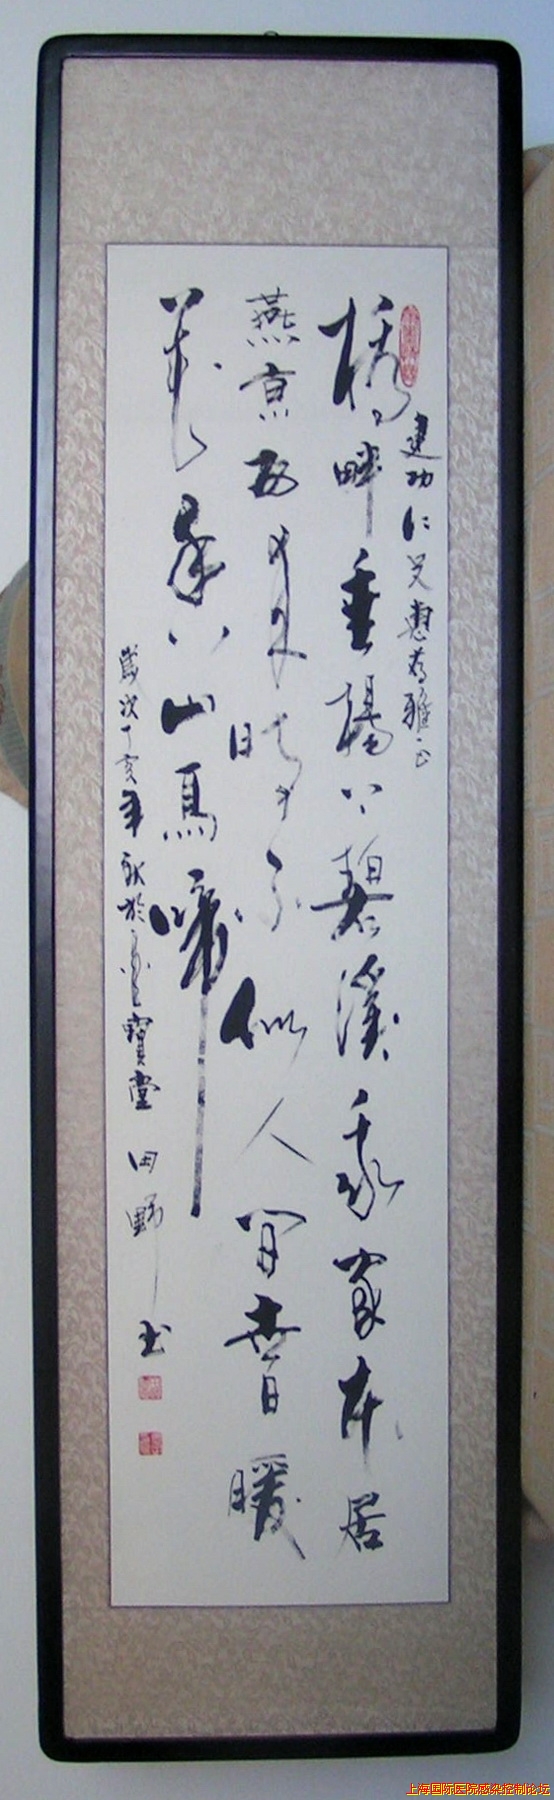 建功仁兄惠存雅正
橋畔垂楊下碧溪家家本居
燕京西來時不似人間世日暖
花香山鳥啼
歲次丁亥年秋於寶堂田野書
上海国际医院感染控制论坛